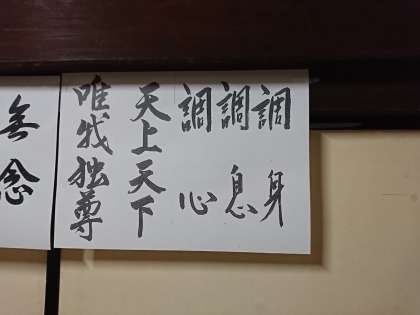 調身
調息
調心
天上天下
唯我独尊
無念